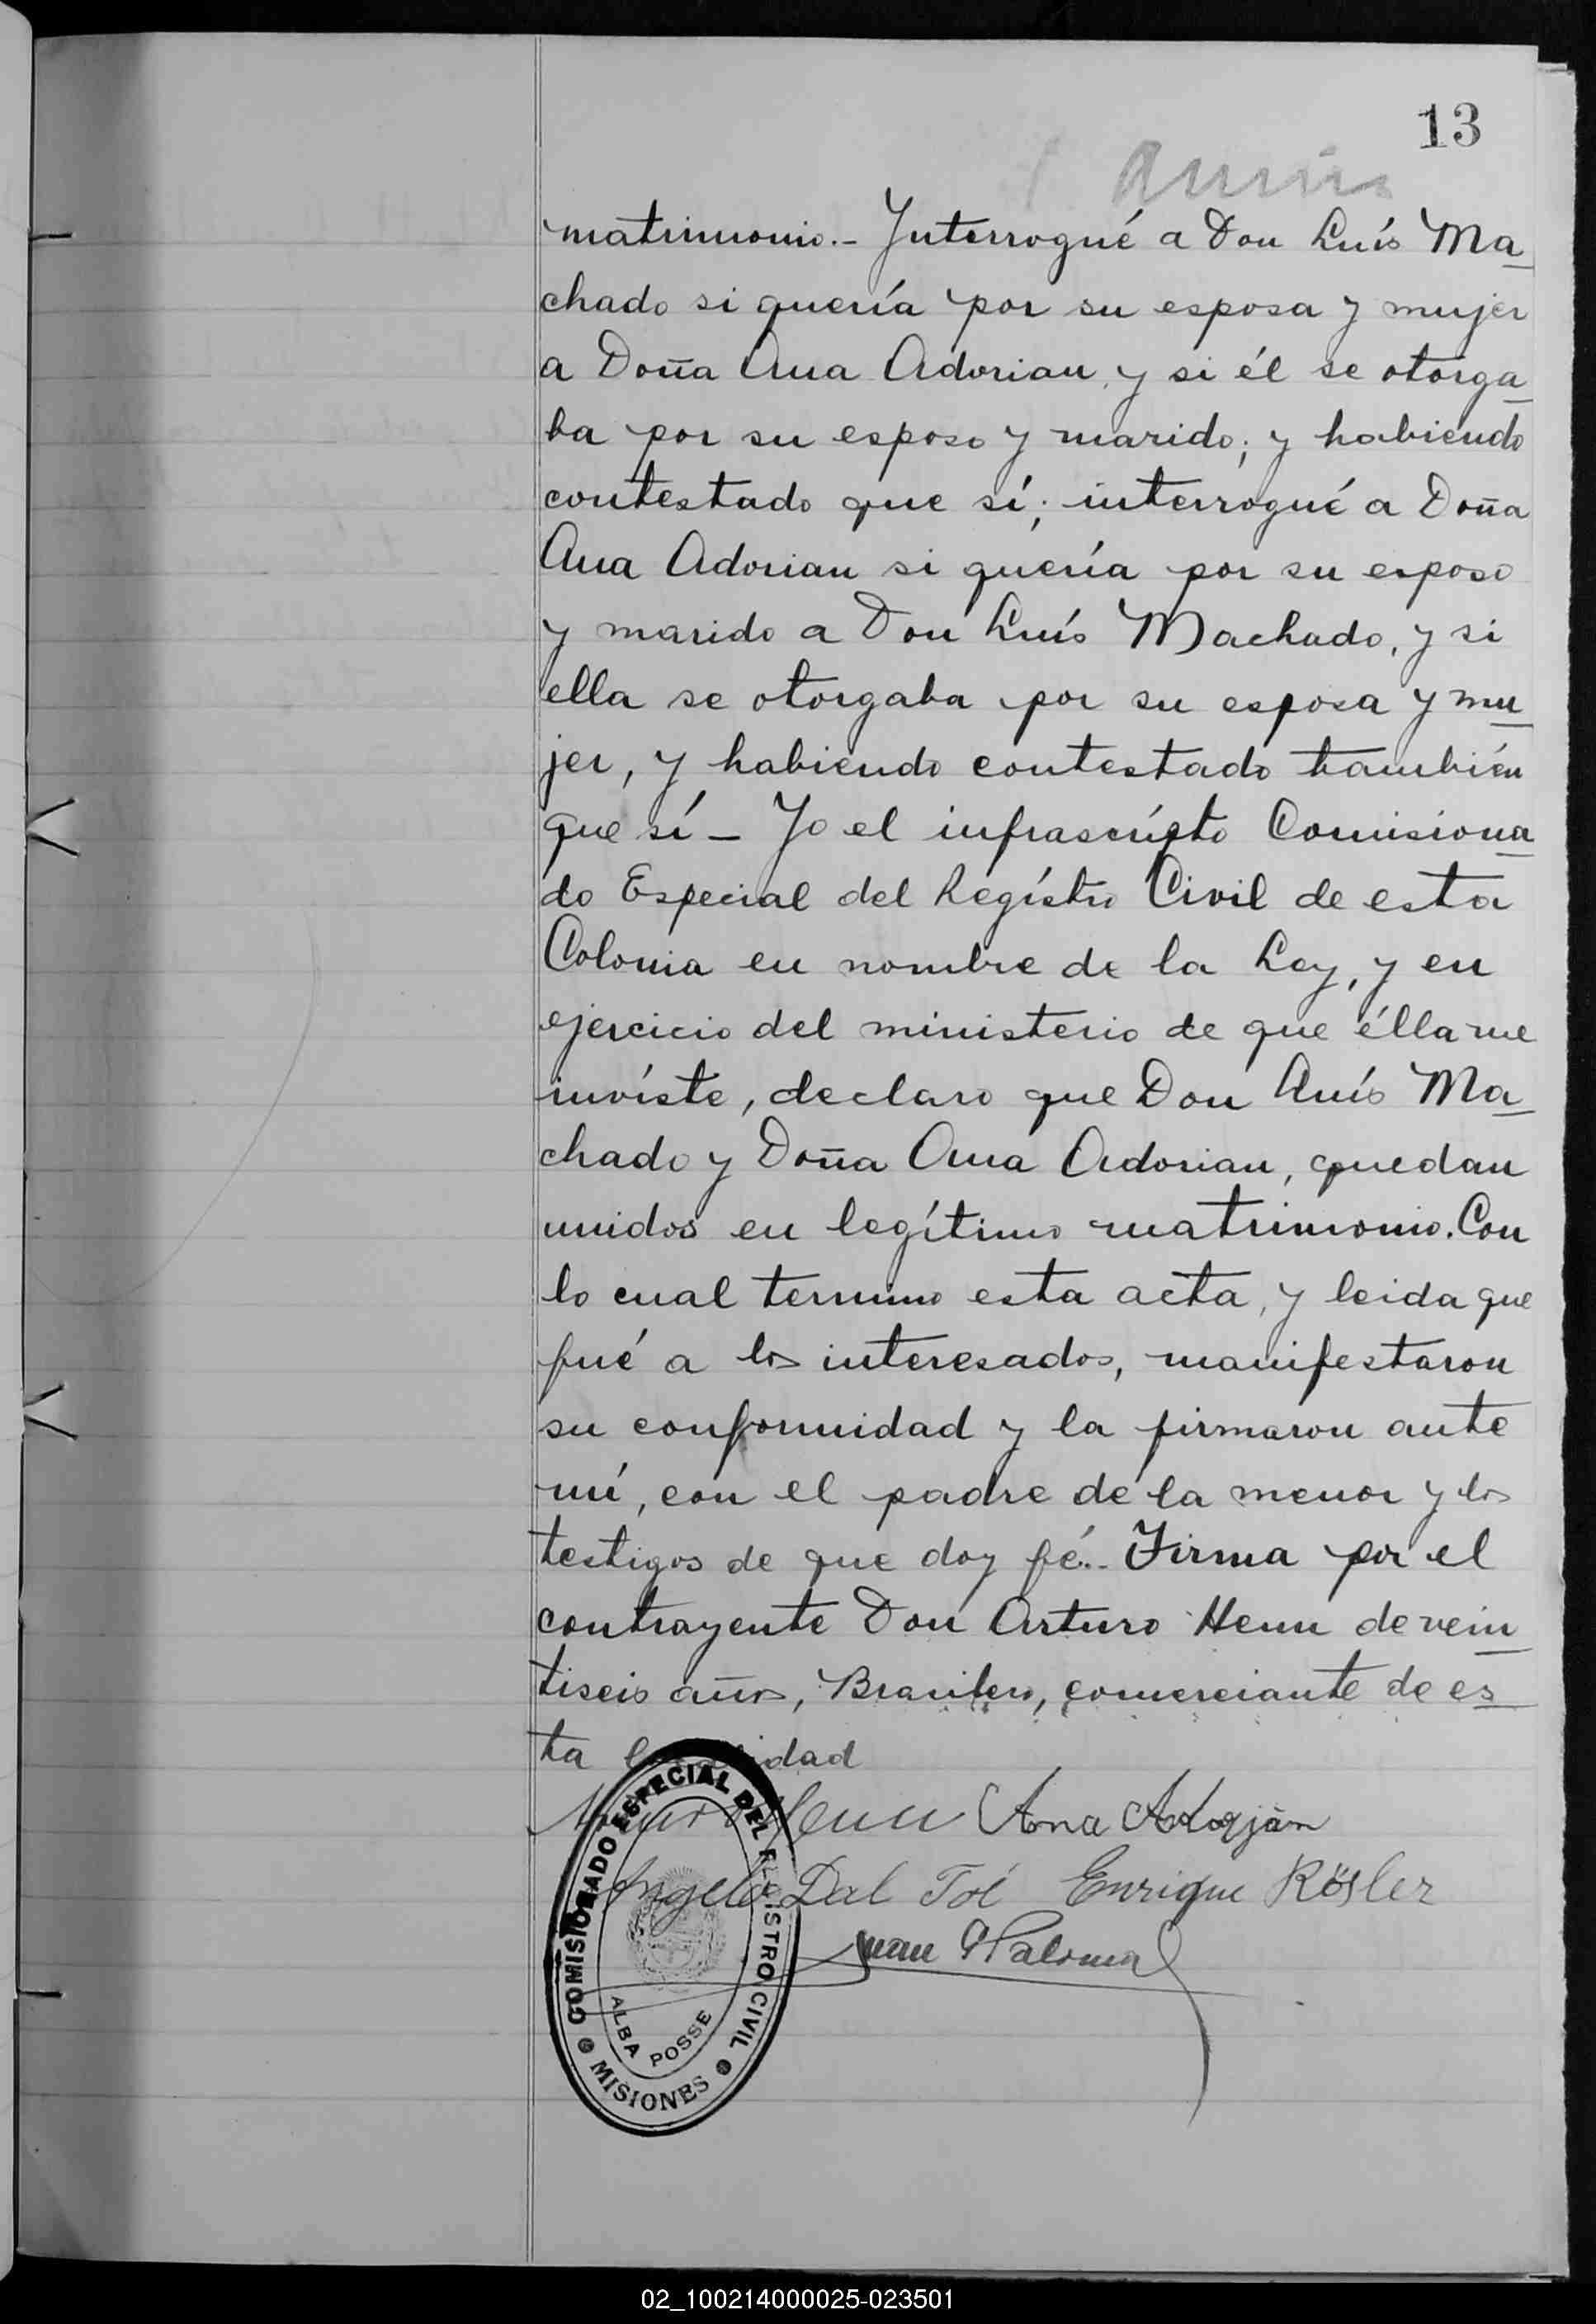 13
matrimonio.- Interrogué a Don Luís Ma
chado si quería por su esposa y mujer
a Doña Ana Adorian, y si él se otorga
ba por su esposo y marido; y habiendo
contestado que sí; interrogué a Doña
Ana Adorian si quería por su esposo
y marido a Don Luís Machado, y si
ella se otorgaba por su esposa y mu
jer, y habiendo contestado también
que sí - Yo el infrascrípto Comisiona
do Especial del Regístro Civil de esta
Colonia en nombre de la Ley, y en
ejercicio del ministerio de que élla me
invíste, declaro que Don Luís Ma
chado y Doña Ana Adorian, quedan
unidos en legítimo matrimonio. Con
lo cual termino esta acta, y leida que
fué a los interesados, manifestaron
su conformidad y la firmaron ante
mí, con el padre de la menor y los
testigos de que doy fé.- Firma por el
contrayente Don Arturo Henn de vein
tiseis años, Brasilero, comerciante de es
ta localidad
Arturo Henn Ana Adorján
Angelo Dal Tol Enrique Rösler
Juan Palomar
COMISIONADO ESPECIAL DEL REGISTRO CIVIL
ALBA POSSE
MISIONES
02_100214000025-023501